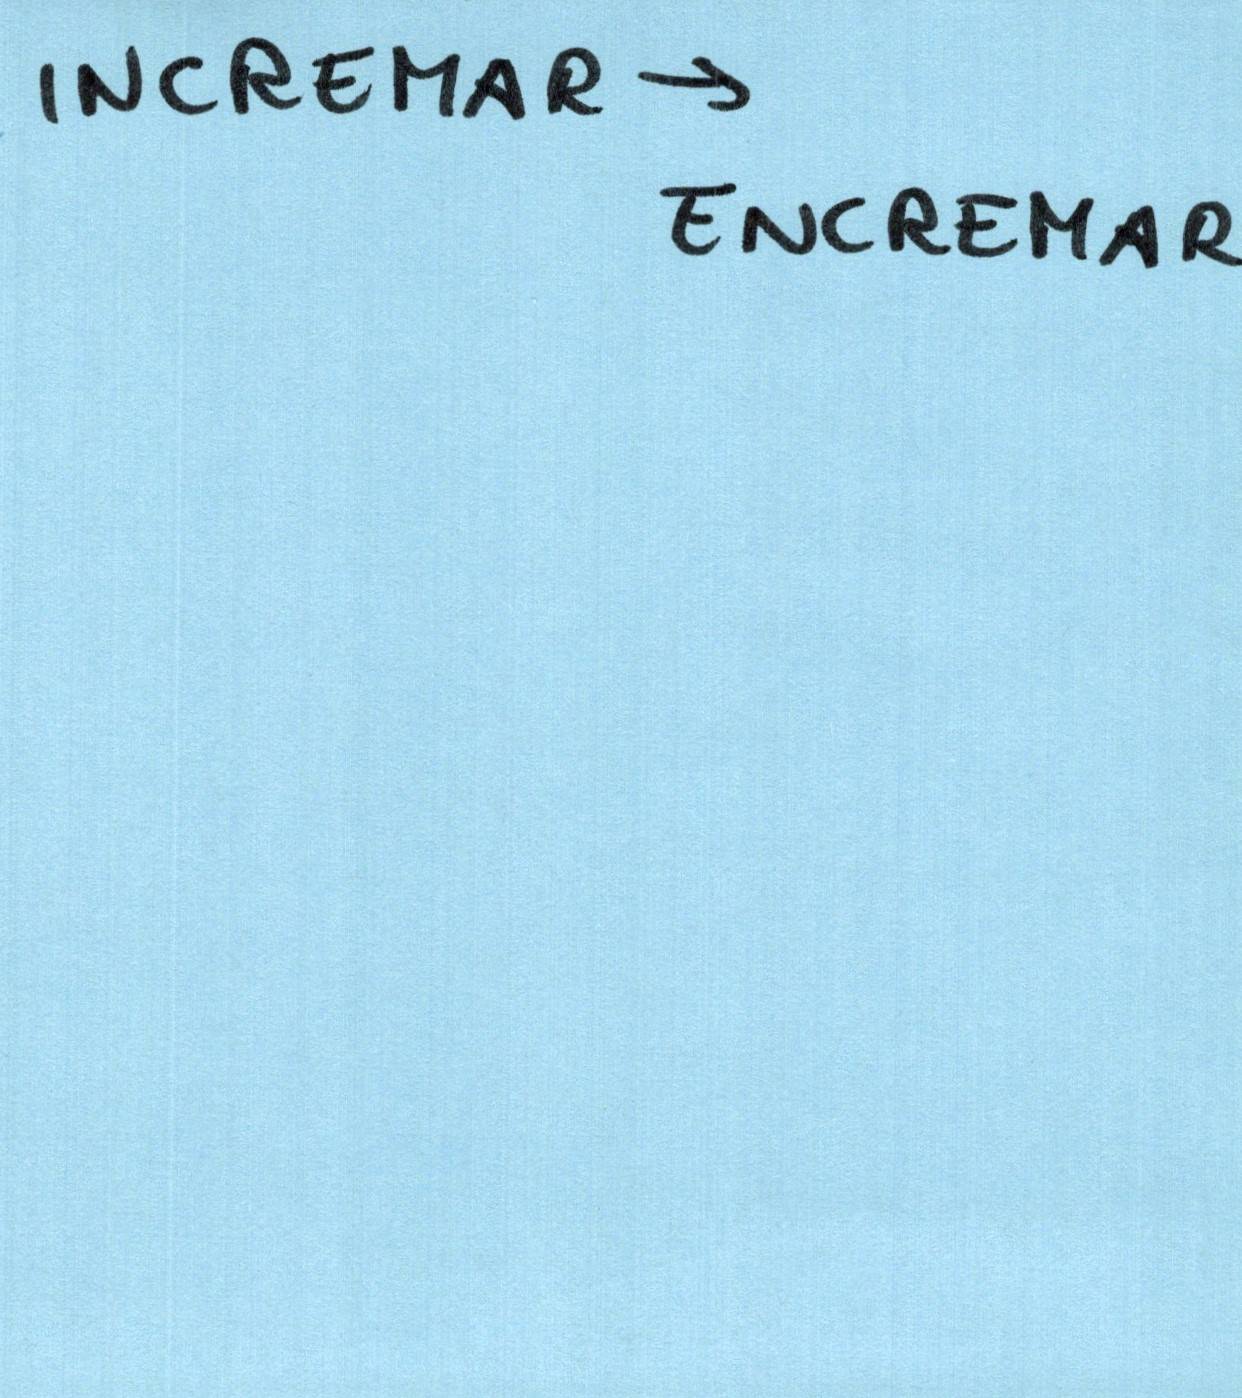 INCREMAR →
ENCREMAR